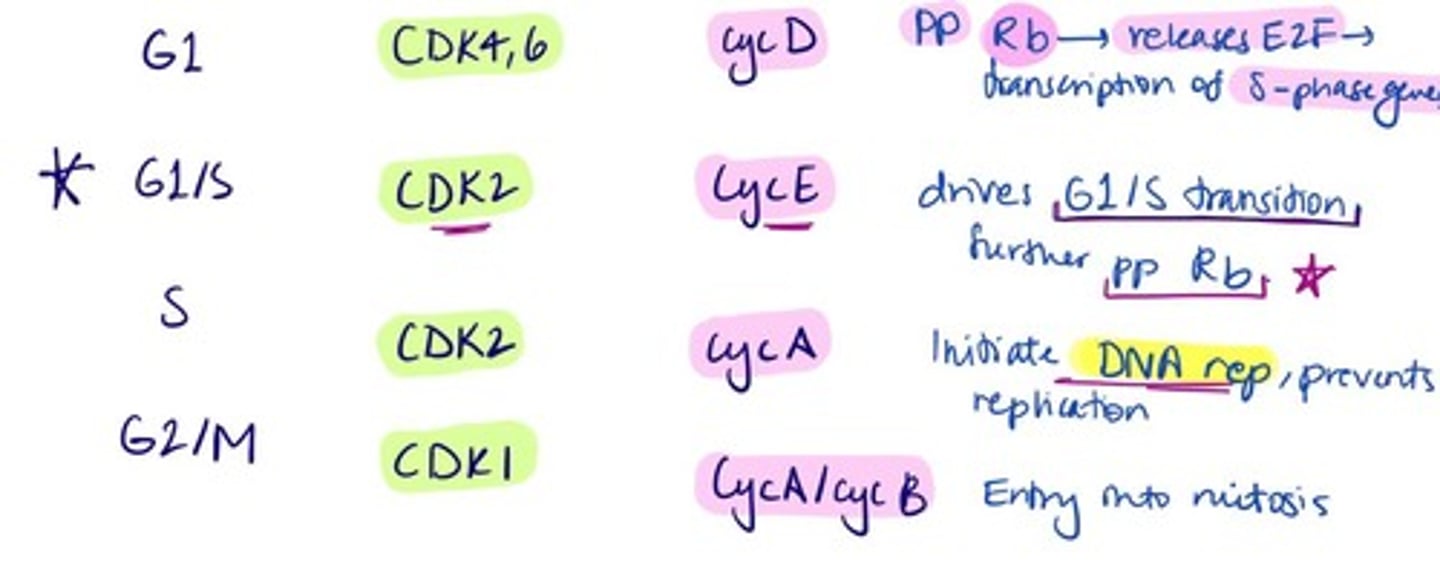 G1 CDK4,6 cyc D PP Rb → releases E2F →
transcription of S-phase gene
G1/S CDK2 CycE drives G1/S transition
further PP Rb
S CDK2 cyc A Initiate DNA rep, prevents
replication
G2/M CDK1 CycA/cyc B Entry into mitosis